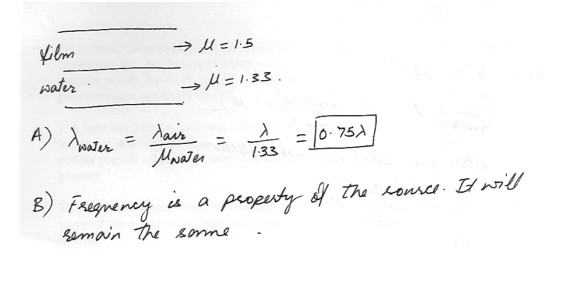 film → μ = 1.5
water → μ = 1.33.
A) λwater = λair / μwater = λ / 1.33 = 0.75λ
B) Frequency is a property of the source. It will
remain the same.